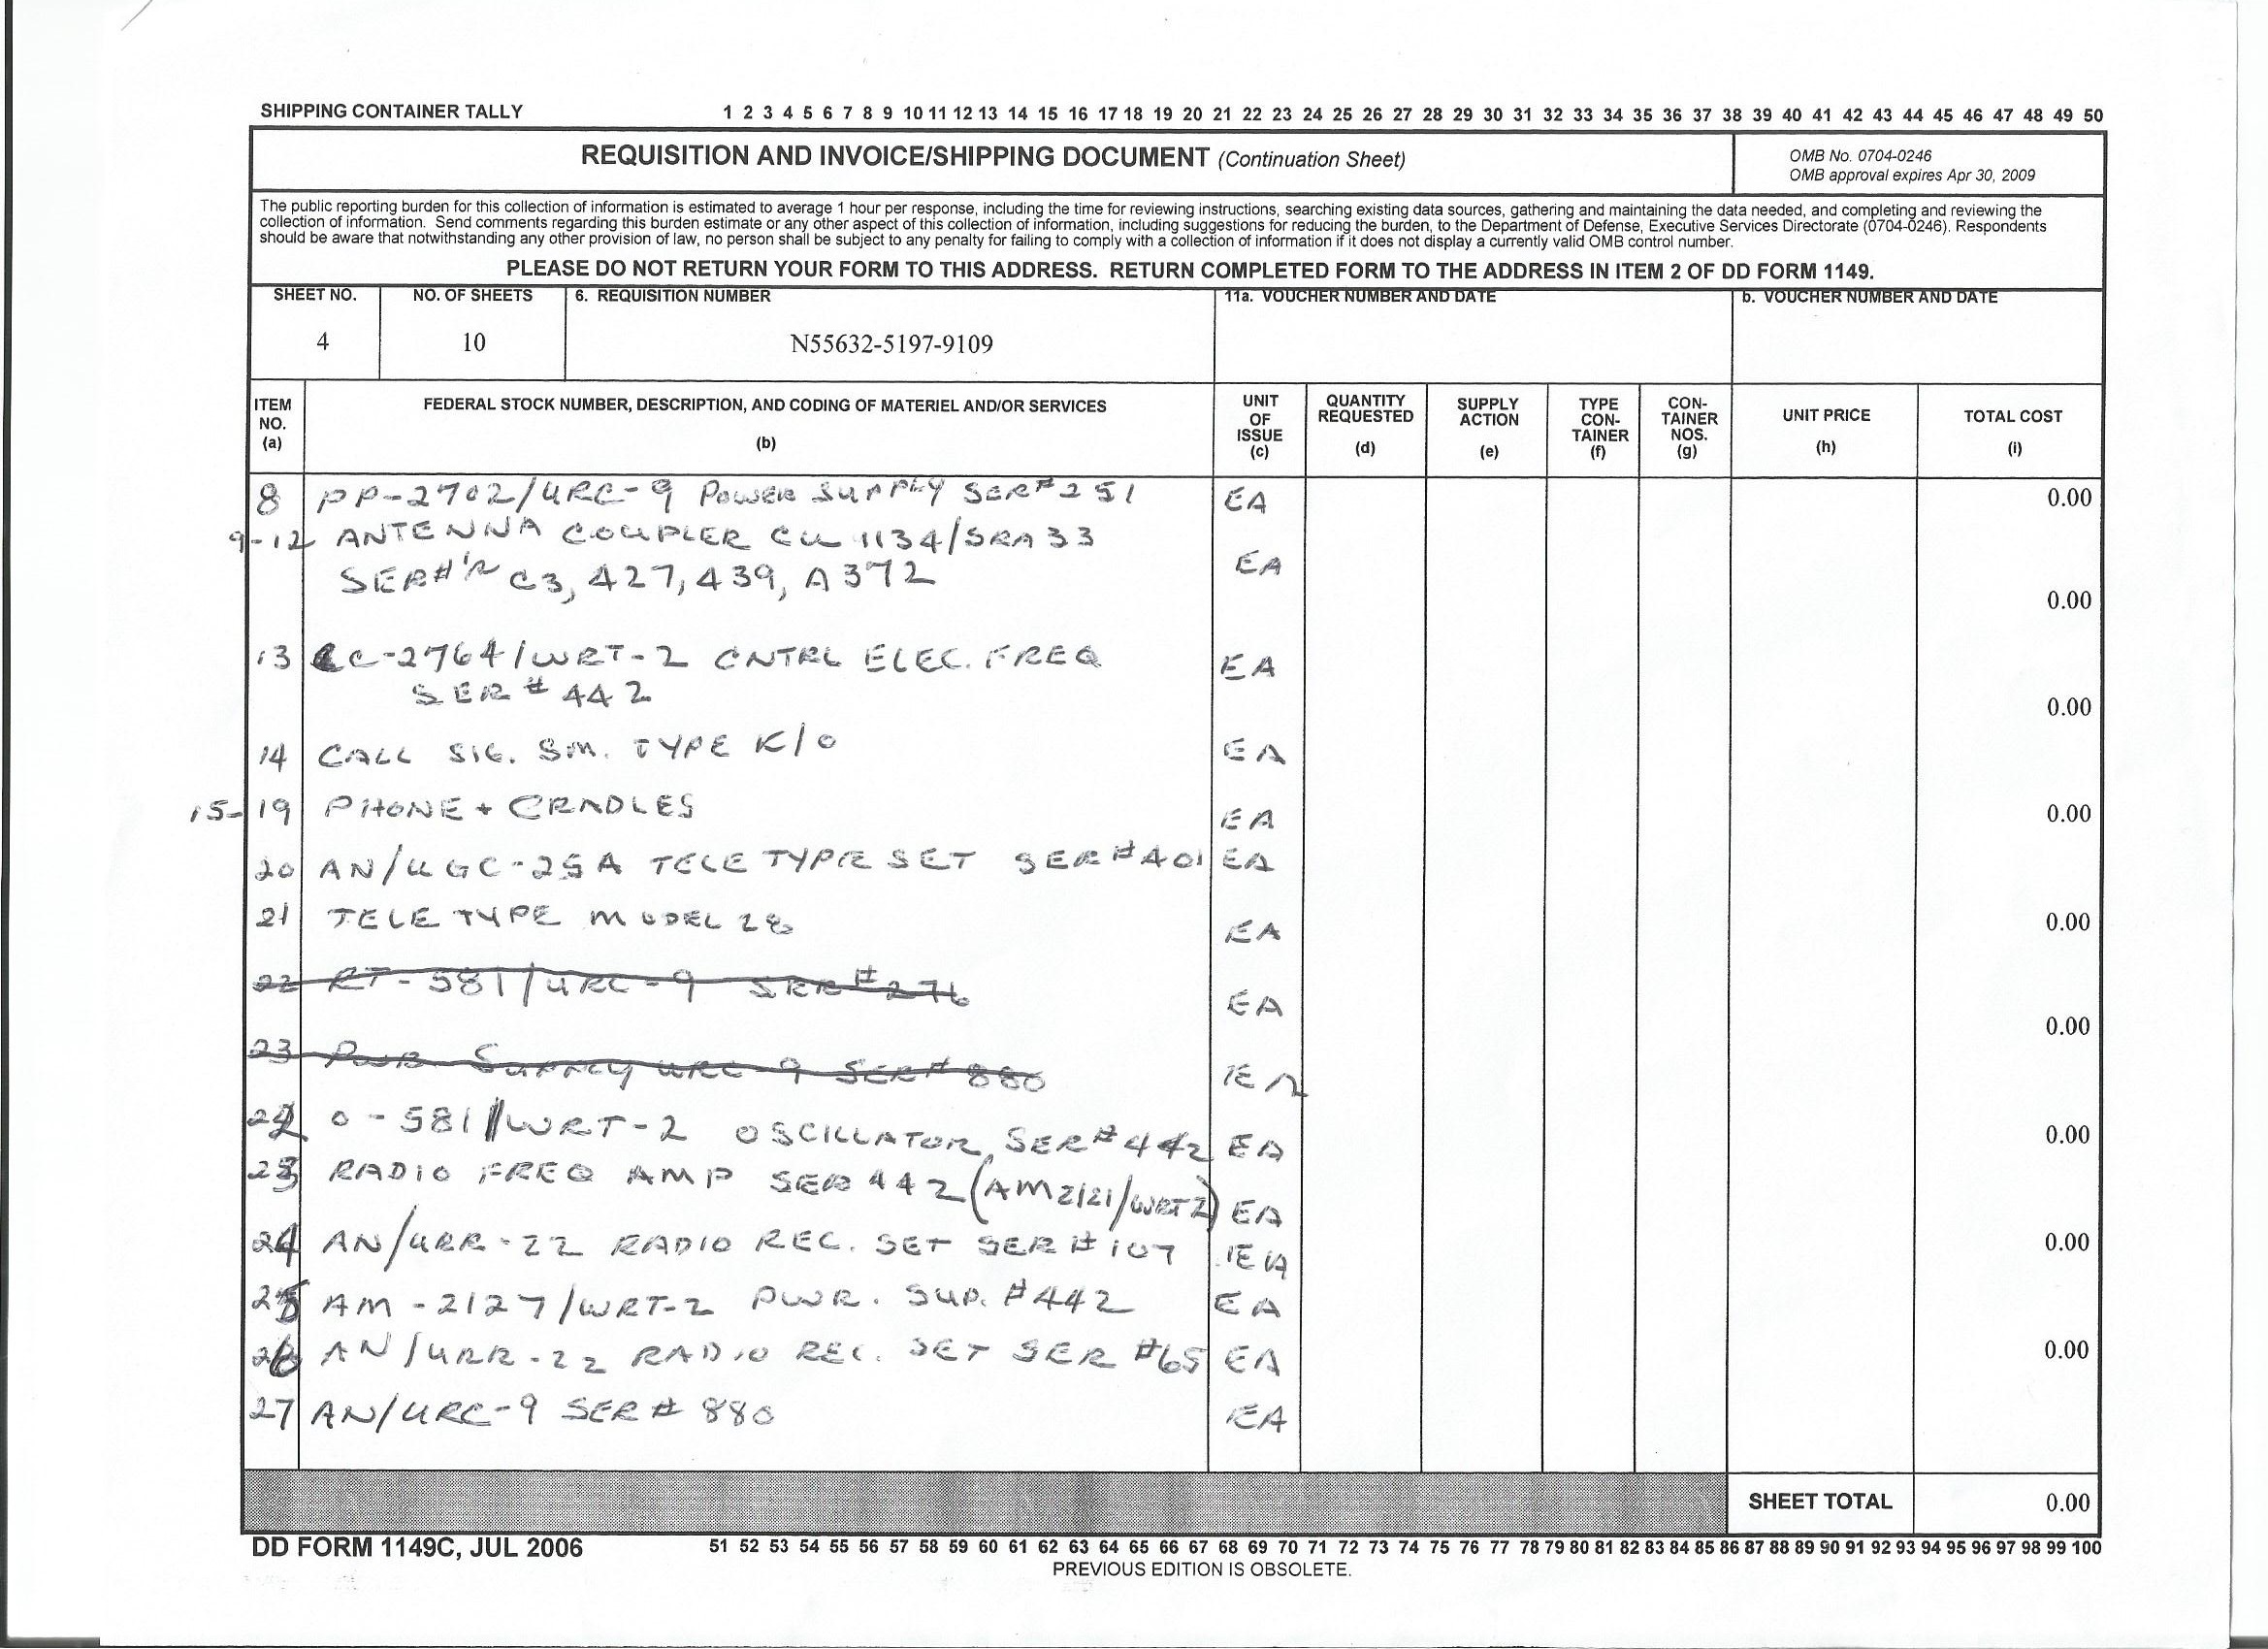 SHIPPING CONTAINER TALLY 1 2 3 4 5 6 7 8 9 10 11 12 13 14 15 16 17 18 19 20 21 22 23 24 25 26 27 28 29 30 31 32 33 34 35 36 37 38 39 40 41 42 43 44 45 46 47 48 49 50
REQUISITION AND INVOICE/SHIPPING DOCUMENT (Continuation Sheet)
OMB No. 0704-0246
OMB approval expires Apr 30, 2009
The public reporting burden for this collection of information is estimated to average 1 hour per response, including the time for reviewing instructions, searching existing data sources, gathering and maintaining the data needed, and completing and reviewing the
collection of information. Send comments regarding this burden estimate or any other aspect of this collection of information, including suggestions for reducing the burden, to the Department of Defense, Executive Services Directorate (0704-0246). Respondents
should be aware that notwithstanding any other provision of law, no person shall be subject to any penalty for failing to comply with a collection of information if it does not display a currently valid OMB control number.
PLEASE DO NOT RETURN YOUR FORM TO THIS ADDRESS. RETURN COMPLETED FORM TO THE ADDRESS IN ITEM 2 OF DD FORM 1149.
SHEET NO. NO. OF SHEETS 6. REQUISITION NUMBER 11a. VOUCHER NUMBER AND DATE b. VOUCHER NUMBER AND DATE
4 10 N55632-5197-9109
ITEM NO. (a) FEDERAL STOCK NUMBER, DESCRIPTION, AND CODING OF MATERIEL AND/OR SERVICES (b) UNIT OF ISSUE (c) QUANTITY REQUESTED (d) SUPPLY ACTION (e) TYPE CON-TAINER (f) CON-TAINER NOS. (g) UNIT PRICE (h) TOTAL COST (i)
8 PP-2702/URC-9 POWER SUPPLY SER# 251 EA 0.00
9-12 ANTENNA COUPLER CU 1134/SRA 33
SER#'s C3, 427, 439, A372 EA 0.00
13 C-2764/WRT-2 CNTRL ELEC. FREQ EA
SER # 442 0.00
14 CALL SIG. SM. TYPE K/O EA
15-19 PHONE + CRADLES EA 0.00
20 AN/UGC-25A TELETYPE SET SER#401 EA
21 TELETYPE MODEL 28 EA 0.00
22 RT-581/URC-9 SER#276 EA
0.00
23 PWR SUPPLY URC-9 SER# 880 EA
22 O-581/WRT-2 OSCILLATOR SER# 442 EA 0.00
23 RADIO FREQ AMP SER 442 (AM2121/WRT2) EA
24 AN/URR-22 RADIO REC. SET SER #107 EA 0.00
25 AM-2127/WRT-2 PWR. SUP. #442 EA
26 AN/URR-22 RADIO REC. SET SER #65 EA 0.00
27 AN/URC-9 SER# 880 EA
SHEET TOTAL 0.00
DD FORM 1149C, JUL 2006 51 52 53 54 55 56 57 58 59 60 61 62 63 64 65 66 67 68 69 70 71 72 73 74 75 76 77 78 79 80 81 82 83 84 85 86 87 88 89 90 91 92 93 94 95 96 97 98 99 100
PREVIOUS EDITION IS OBSOLETE.